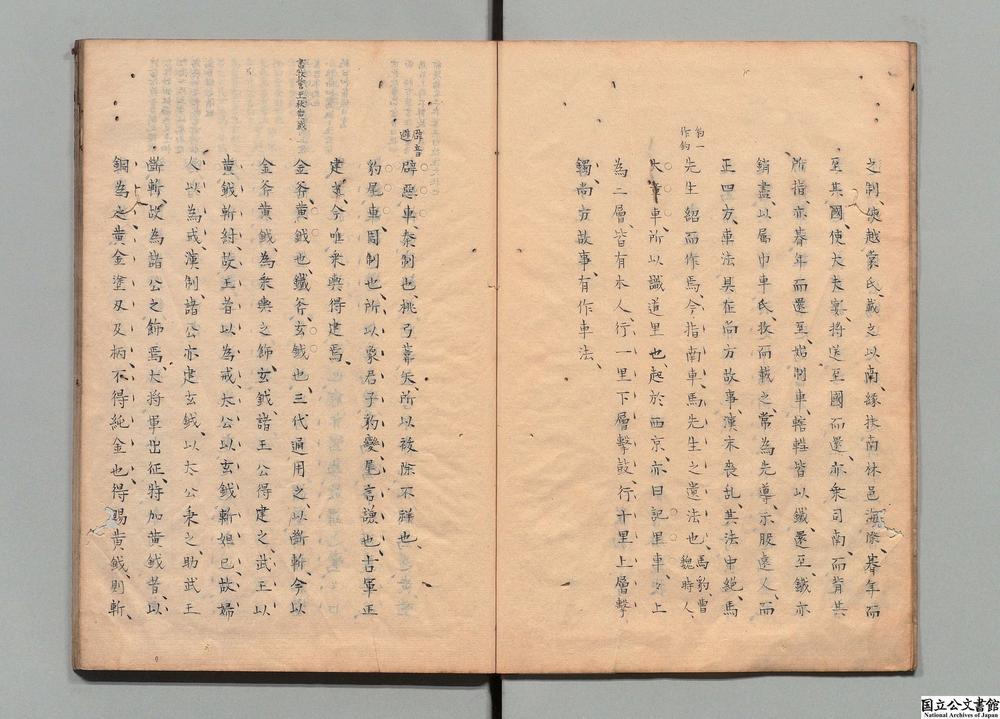 之制、使越裳氏、載之以南、緣扶南林邑海際、朞年而
至其國、使大夫宴將送至國而還、亦乘司南、而背其
所指、亦朞年而還至、始制車轄轊皆以鐵、還至、鐵亦
銷盡、以屬巾車氏、收而載之、常為先導、示服遠人、而
正四方、車法具在尚方故事、漢末喪亂、其法中絕、馬
先生紹而作焉、今指南車、馬先生之遺法也、馬豹、曹魏時人、
豹一作鈞
大章車、所以識道里也、起於西京、亦曰記里車、車上
為二層、皆有木人、行一里下層擊鼓、行十里上層擊
鐲、尚方故事、有作車法、
辟音避
辟惡車、秦制也、桃弓葦矢、所以祓除不祥也、
豹尾車、周制也、所以象君子豹變、尾言謙也、古軍正
建焉、今唯乘輿得建焉、
書牧誓王杖黃鉞
金斧黃鉞也、鐵斧玄鉞也、三代通用之、以斷斬、今以
金斧黃鉞、為乘輿之飾、玄鉞、諸王公得建之、武王以
黃鉞斬紂、故王者以為戒、太公以玄鉞斬妲己、故婦
人以為戒、漢制諸公亦建玄鉞、以太公秉之、助武王
斷斬、故為諸公之飾焉、大將軍出征、特加黃鉞者、以
銅為之、黃金塗刃及柄、不得純金也、得賜黃鉞、則斬、
国立公文書館
National Archives of Japan